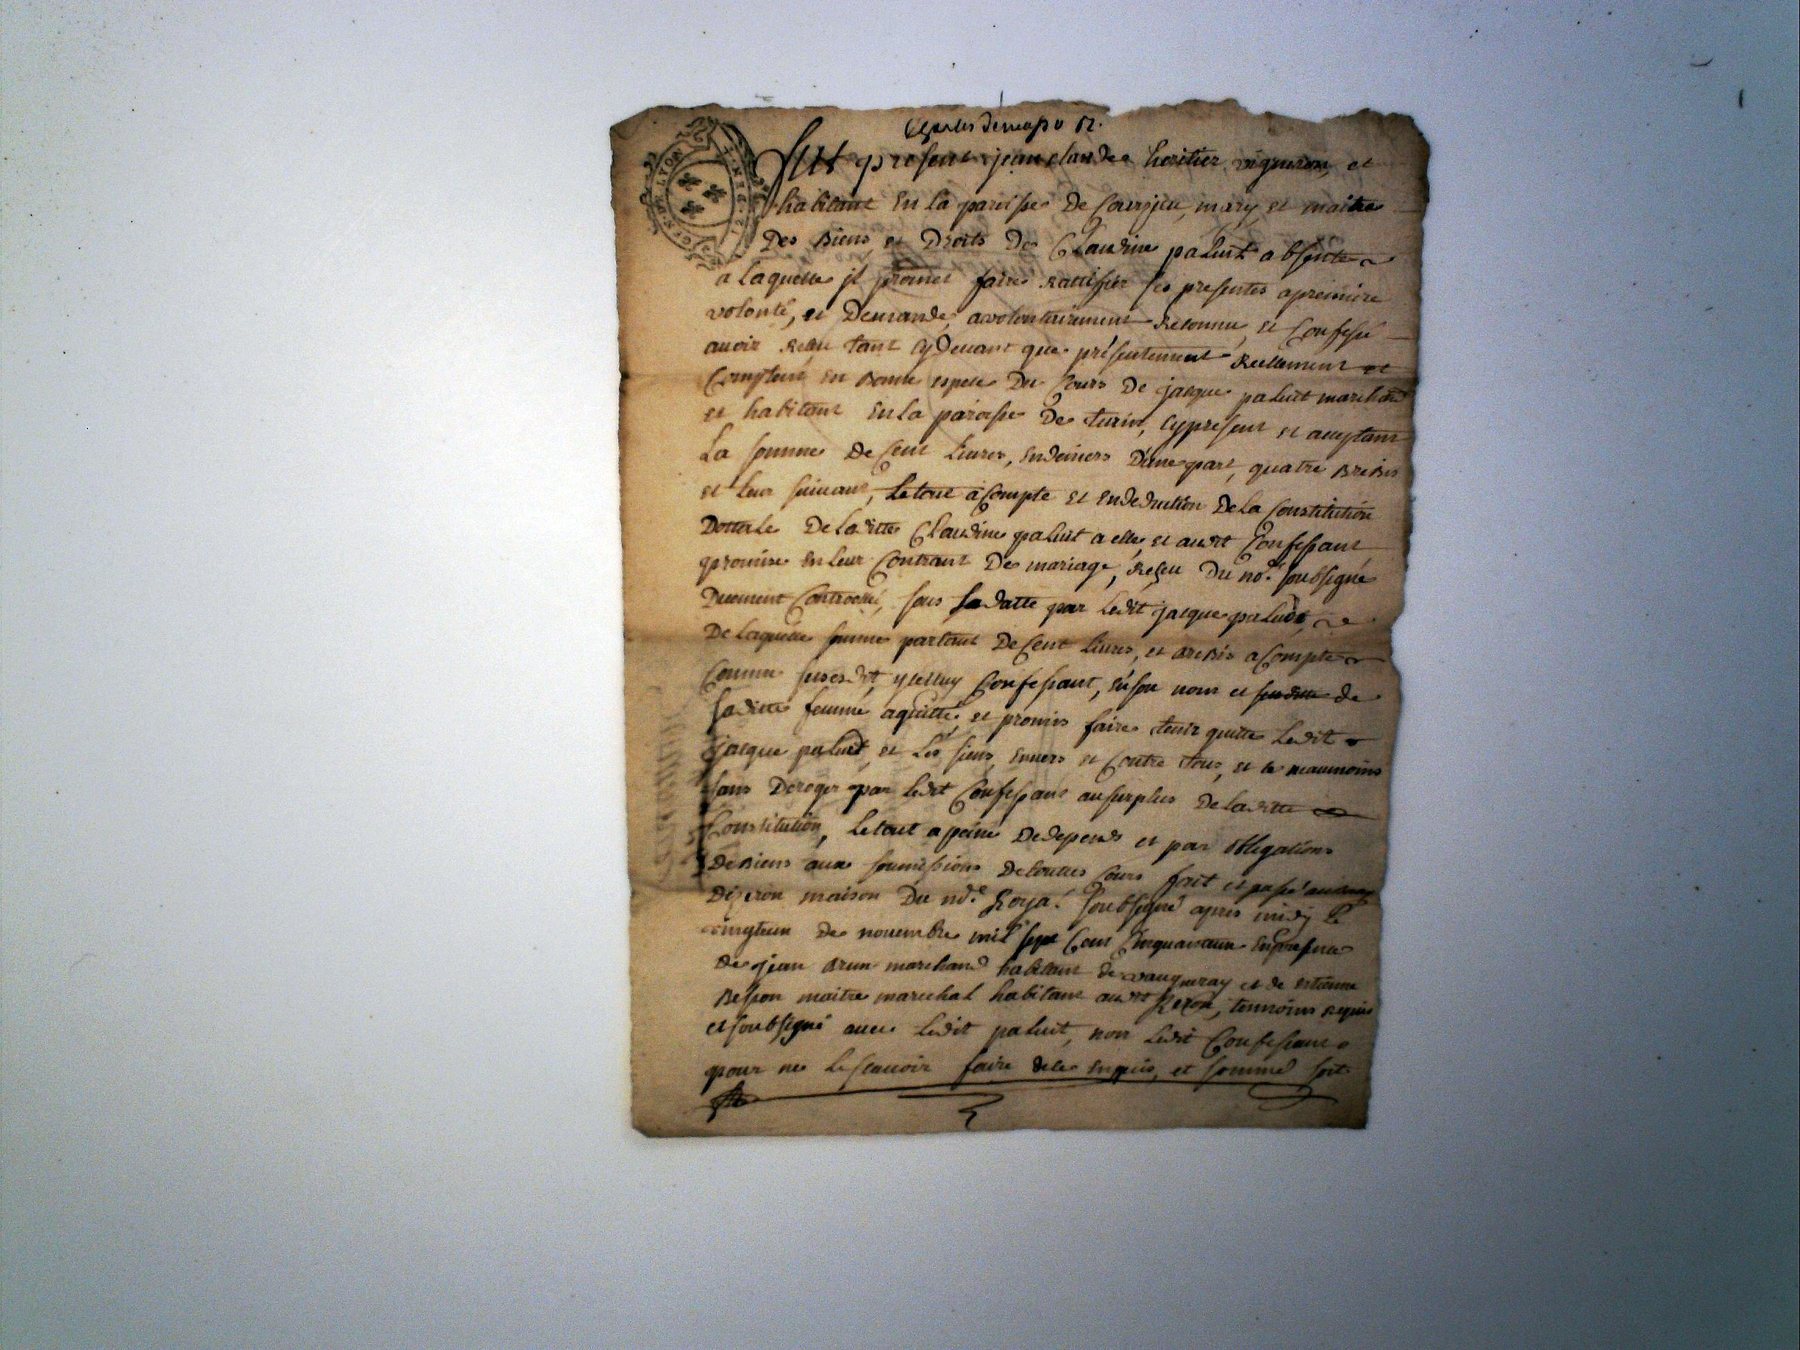 GEN. DE LYON
fut present jean claude heritier vigneron, et
habitant En la paroisse De Courzieu, mary et maitre
Des Biens, et Droits De Claudine paluit absente
a laquelle jl promet faire Rattiffier les presentes apremiere
volonté, et Demande, a volontairement Reconnu, et Confessé
avoir Receu tant cyDevant que présentement Reellement et
Comptant En Bonne espece Du Cours De jacque paluit marchand
et habitant En la paroisse De turin, cypresent et aceptant
La somme De Cent Livres, En deniers D'une part, quatre Brebis
et leur suivant, Letout àCompte et EndeDuction De la Constitution
Dottale De laditte Claudine paluit a elle, et audit Confessant
promise En leur Contract De mariage, Reçeu Du no.re soubsigné
Duement Controollé, sous sa datte par Ledit jacque paluit,
De laquelle somme partant De Cent livres, et Brebis a Compte
Comme susesdit, ycelluy Confessant, En son nom et de
saditte femme aquitté, et promis faire tenir quitte Ledit
jacque paluit, et Les siens, Envers et Contre tous, et neaumoins
sans Deroger par Ledit Confessant au surplus De laditte
Constitution, Letout a peine De depends et par obligations
De Biens aux soumissions De touttes Cours fait et passé
maison Du no.re Royal soubsigné apres midy le
vingtun De novembre mil sept Cent Cinquanteun En presence
De jean Brun marchand habitant de vaugneray et de estienne
Besson maitre marechal habitant audit, temoins requis
et soubsigné avec Ledit paluit, non Ledit Confessant
pour ne Le scavoir faire de ce Enquis, et sommé soit